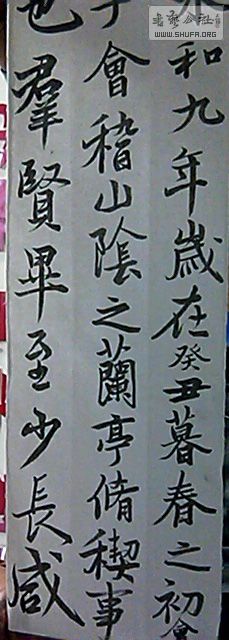 和九年歲在癸丑暮春之初會
于會稽山陰之蘭亭脩稧事
也羣賢畢至少長咸
書艺公社
WWW.SHUFA.ORG